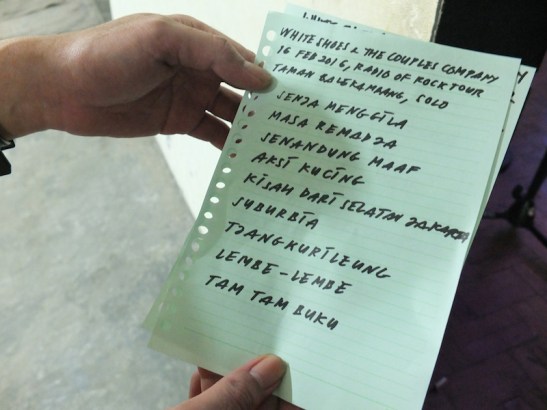 WHITE SHOES & THE COUPLES COMPANY
16 FEB 2016, RADIO OF ROCK TOUR
TAMAN BALEKAMBANG, SOLO
SENJA MENGGILA
MASA REMADJA
SENANDUNG MAAF
AKSI KUCING
KISAH DARI SELATAN JAKARTA
SUBURBIA
TJANGKURILEUNG
LEMBE-LEMBE
TAM TAM BUKU